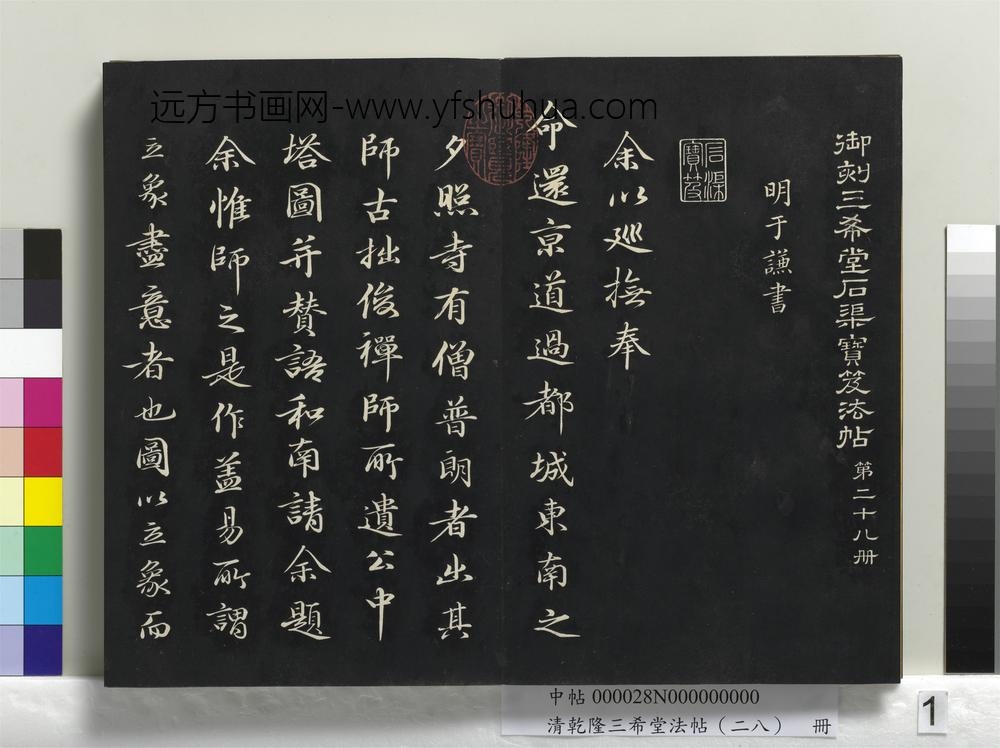 远方书画网-www.yfshuhua.com
御刻三希堂石渠寶笈法帖 第二十八册
明于謙書
石渠寶笈
余以巡撫奉
命還京道過都城東南之
夕照寺有僧普朗者出其
師古拙俊禪師所遺公中
塔圖并賛語和南請余題
余惟師之是作盖易所謂
立象盡意者也圖以立象而
中帖 000028N000000000
清乾隆三希堂法帖(二八) 冊
1